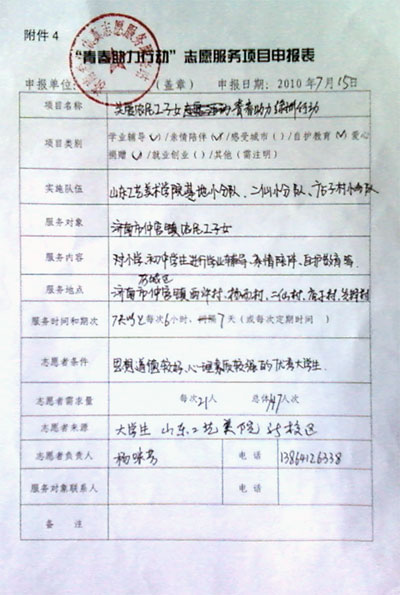 附件4
“青春助力行动”志愿服务项目申报表
申报单位: (盖章) 申报日期: 2010年7月15日
项目名称 关爱农民工子女 青春助力 行动
项目类别 学业辅导 ✓ / 亲情陪伴 ✓ / 感受城市 ( ) / 自护教育 ✓ 爱心
捐赠 ✓ / 就业创业 ( ) / 其他 (需注明)
实施队伍 山东工艺美术学院基地小分队、二仙小分队、 村小分队
服务对象 济南市仲宫镇农民工子女
服务内容 对小学、初中学生进行学业辅导、亲情陪伴、自护教育等
服务地点 济南市仲宫镇 村、 村、二仙村、
服务时间和期次 7天 每次6小时、 7天 (或每次定期时间 )
志愿者条件 思想道德较好、心理素质较强的优秀大学生.
志愿者需求量 每次21人 总体147人次
志愿者来源 大学生 山东工艺美院 校区
志愿者负责人 杨 电话 13864126338
服务对象联系人 电话
备注